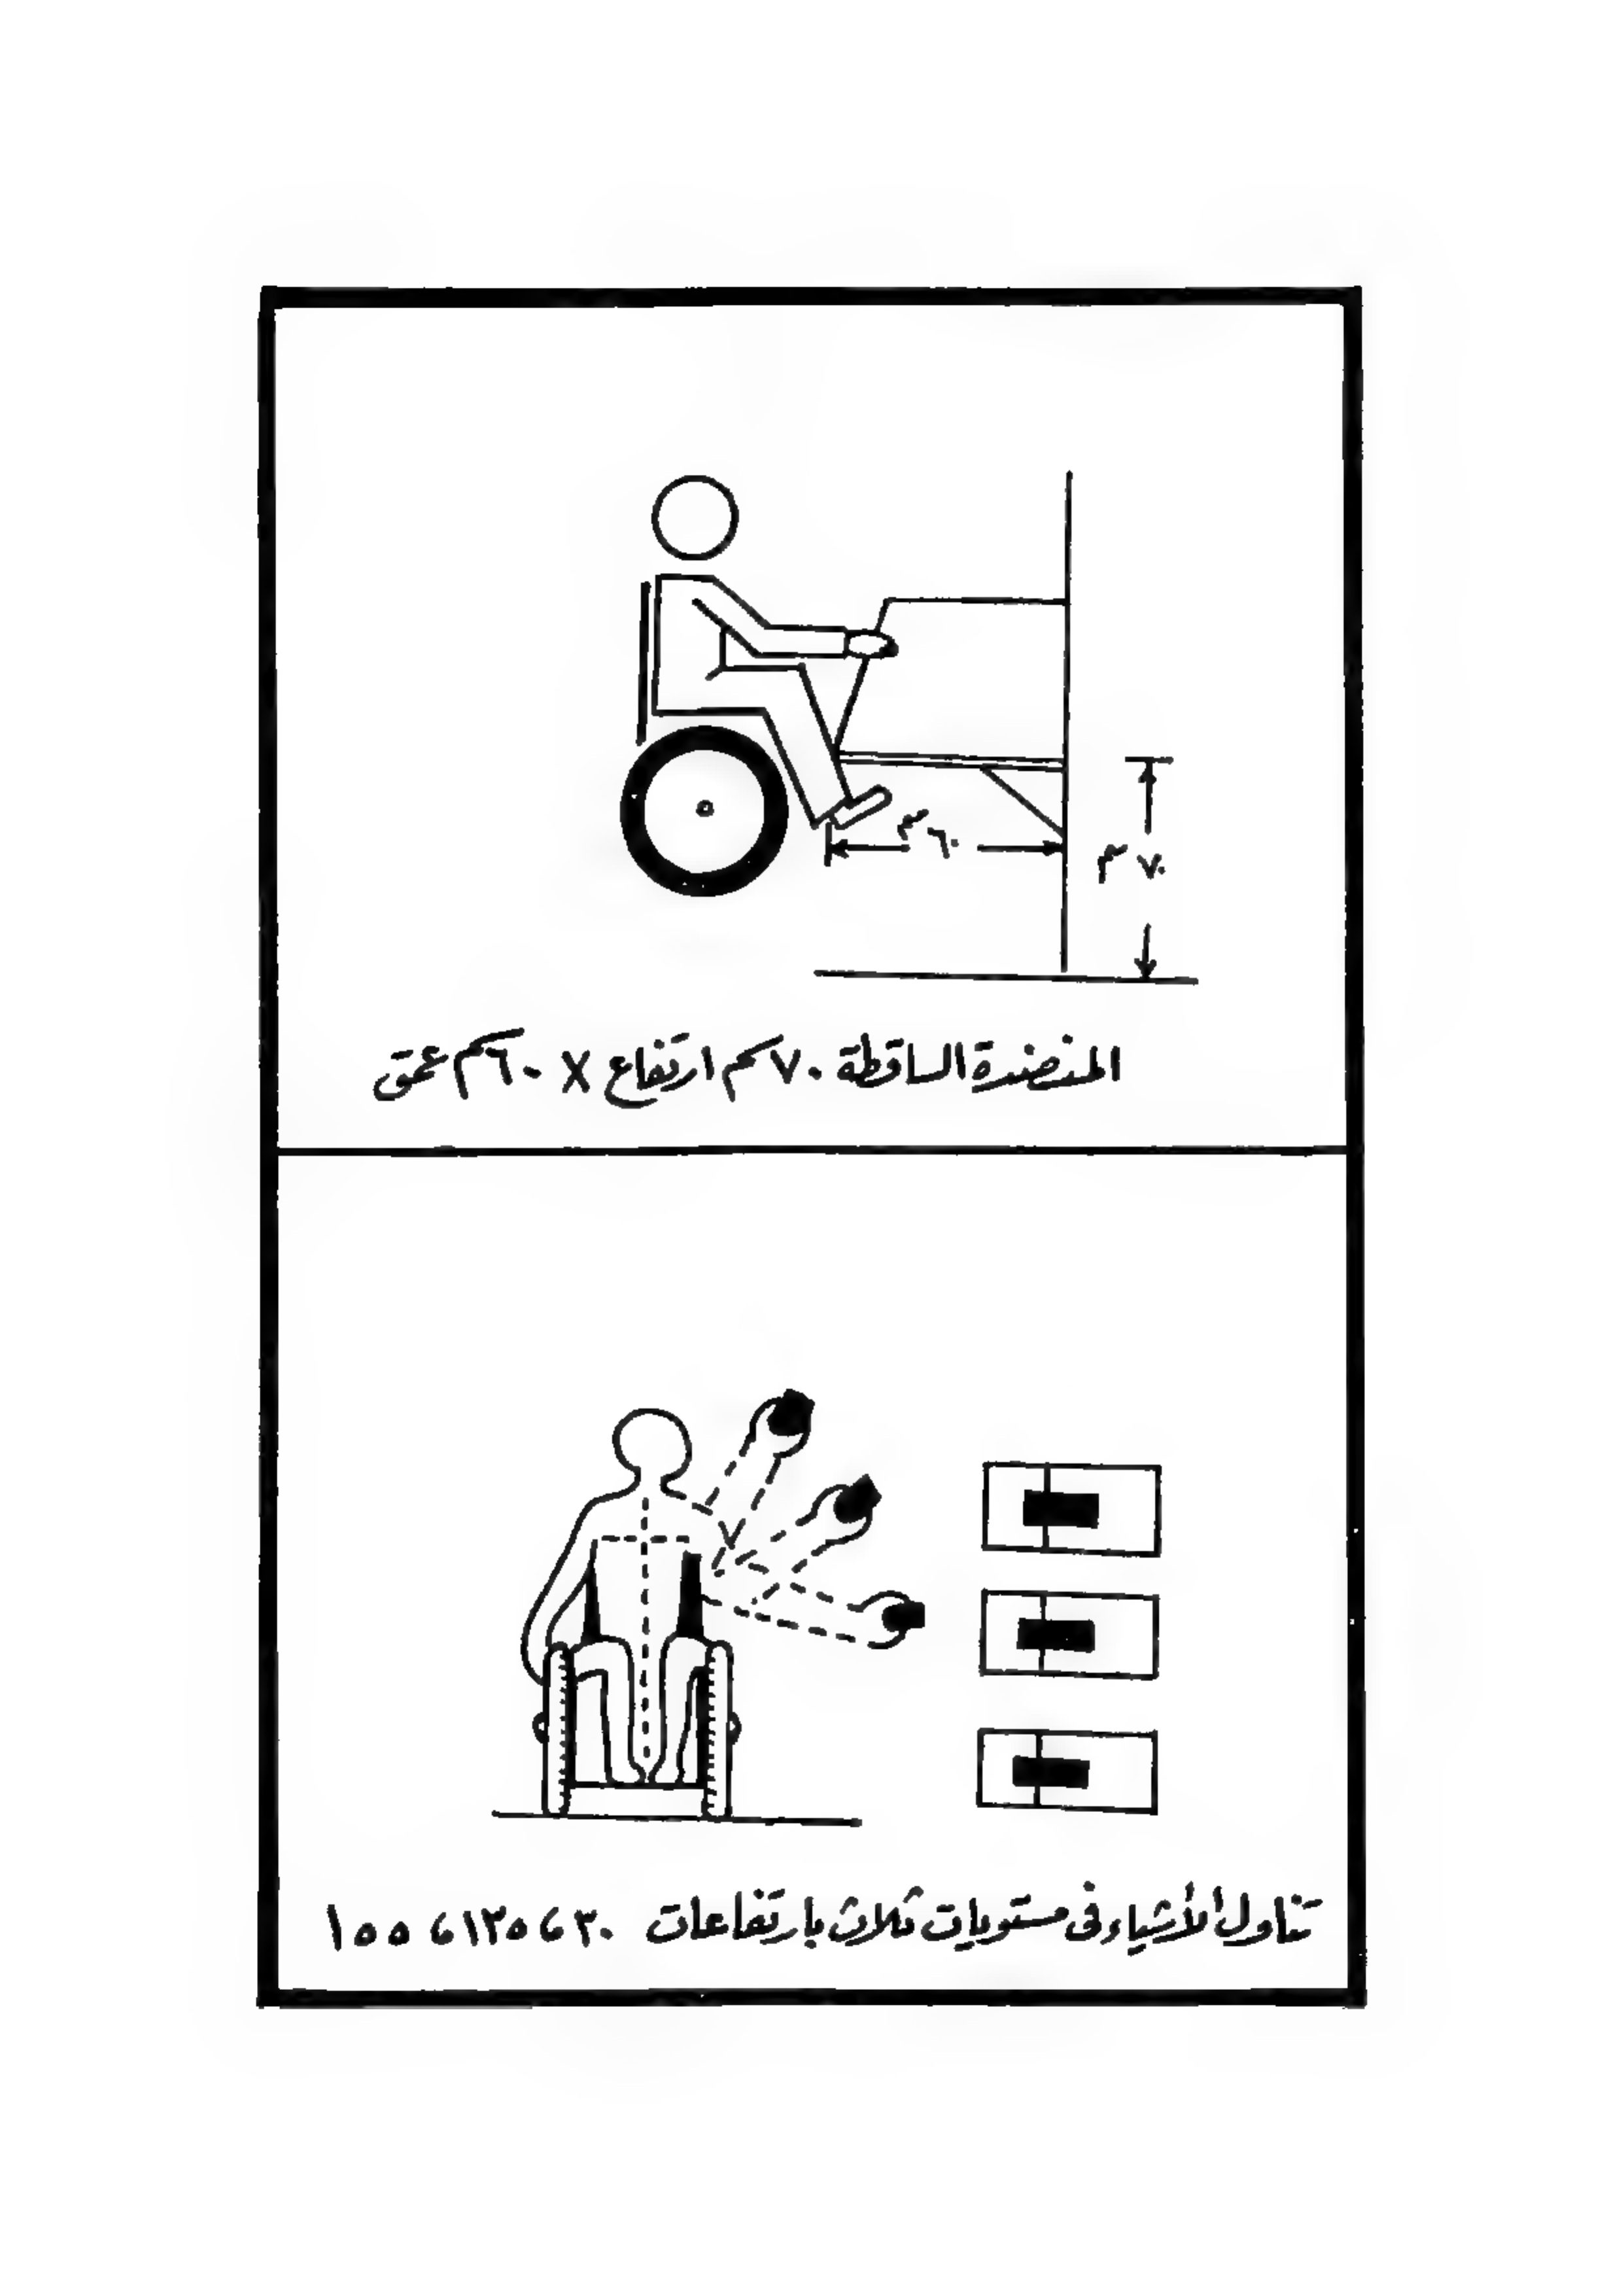 ٦٠ سم
٧٠ سم
المنضدة الساقطة ٧٠ سم ارتفاع X ٦٠ سم عمق
تناول الأشياء فى مستويات ثلاث بارتفاعات ٣٠، ١٣٥، ١٥٥